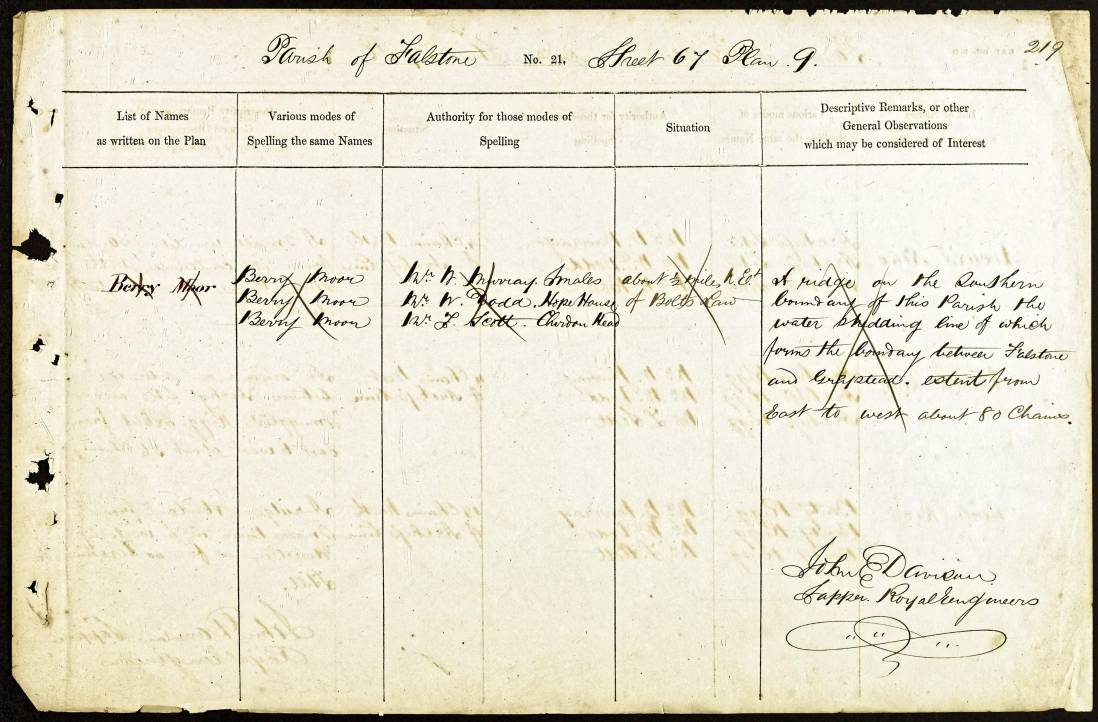 219
Parish of Falstone No. 21. Sheet 67 Plan 9.
List of Names
as written on the Plan
Various modes of
Spelling the same Names
Authority for those modes of
Spelling
Situation
Descriptive Remarks, or other
General Observations
which may be considered of Interest
Berry Moor
Berry Moor
Berry Moor
Berry Moor
Mr. Murray. Smales
Mr. W. Dodd. Hope House
Mr. J. Scott. Chirdon Head
about ½ miles N. Et.
of Bolts Law
A ridge on the Southern
boundary of this Parish the
water shedding line of which
forms the boundary between Falstone
and Greystead. extent from
East to west about 80 Chains.
John E Davison
Sapper. Royal Engineers